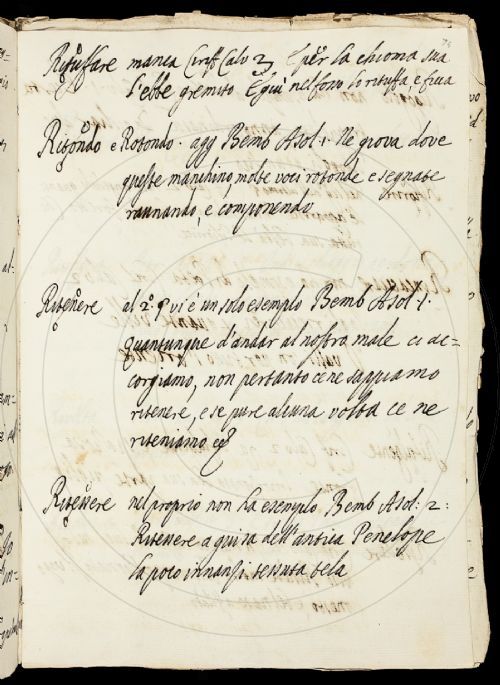 Rituffare manca Ciriff Calv 3 E per la chioma sua
l'ebbe gremito E giù nel fosso lo rituffa, e ficca
Ritondo e Rotondo. agg Bemb Asol. 1. Ne giova dove
queste manchino, molte voci rotonde e segnate
raunando, e componendo
Ritenere al 2° § vi è un solo esempio Bemb Asol. 1.
Quantunque d'andar al nostro male ci ac=
corgiamo, non pertanto ce ne sappiamo
ritenere, e se pure alcuna volta ce ne
riteniamo
Ritessere nel proprio non ha esempio Bemb Asol: 2:
Ritessere a guisa dell'antica Penelope
la poco innanzi tessuta tela